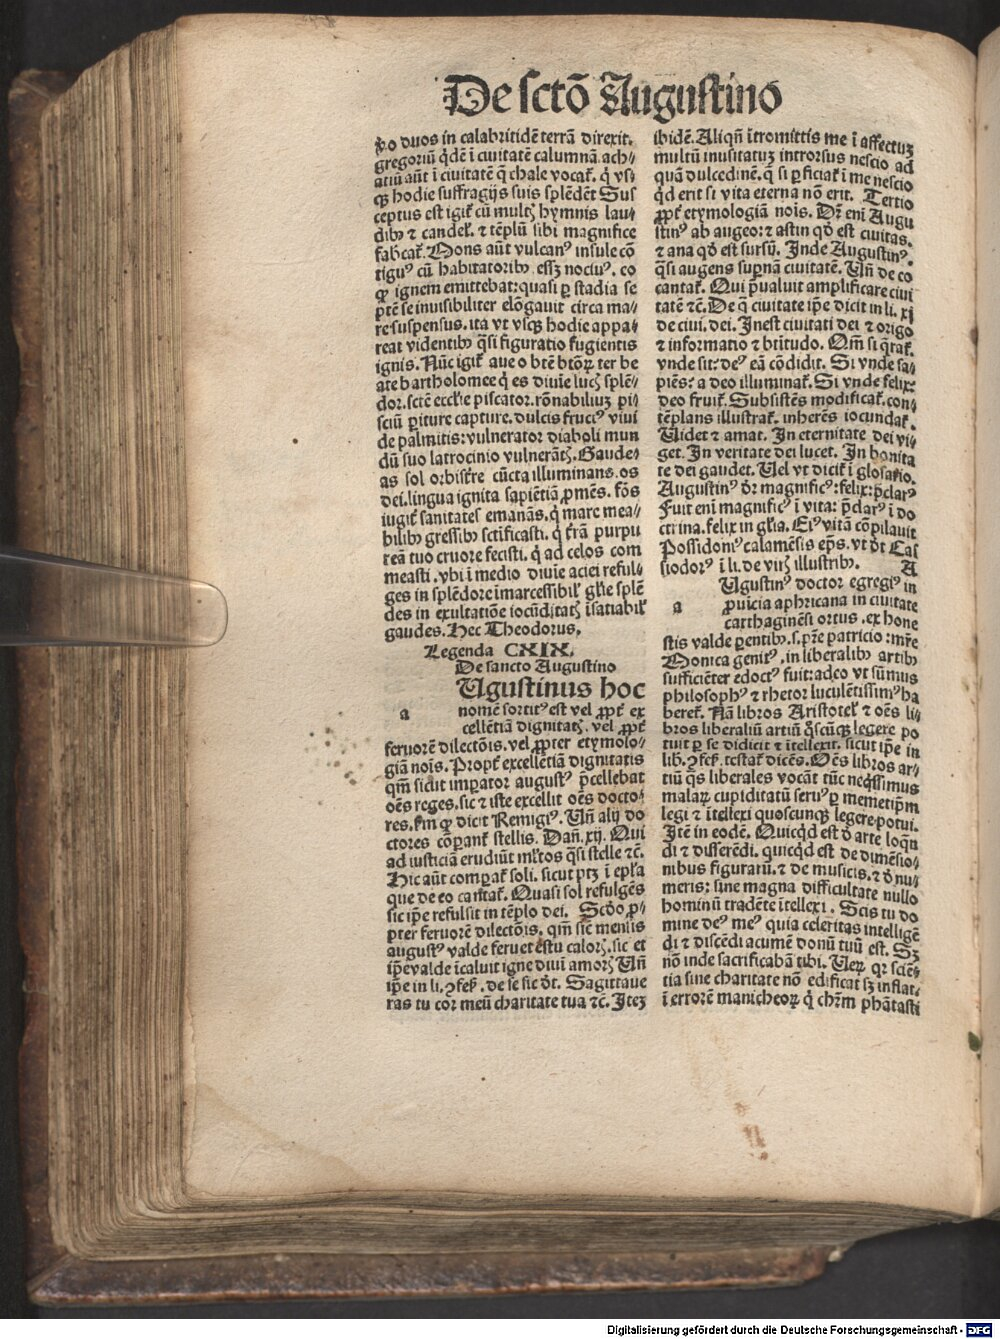 De sctō Augustino
ꝟo duos in calabritidē terrā direxit.
gregoriū q̇dē ī ciuitatē calumnā. ach⸗
atiū aūt ī ciuitatē q̄ chale vocat̃. q̇ vs⸗
qꝫ hodie suffragijs suis splēdēt Sus
ceptus est igit̃ cū multꝭ hymnis lau⸗
dibꝰ ⁊ candel̃. ⁊ tēplū sibi magnifice
fabcat̃. Mons aūt vulcanꝰ insule cō
tiguꝰ cū habitatoribꝰ eēt nociuꝰ. eo
ꝙ ignem emittebat: quasi ꝑ stadia se
ptē se inuisibiliter elōgauit circa ma⸗
re suspensus. ita vt vsqꝫ hodie appa⸗
reat videntibꝰ q̄si figuratio fugientis
ignis. Nūc igit̃ aue o btē btōꝝ ter be
ate bartholomee q̇ es diuīe lucꝭ splē⸗
dor. sctē eccl'ie piscator. rōnabiliuꝫ pi⸗
sciū ꝑiture capture. dulcis fructꝰ viui
de palmitis: vulnerator diaboli mun
dū suo latrocinio vulnerātꝭ. Gaude⸗
as sol orbis tr̄e cūcta illuminans. os
dei. lingua ignita sapiētiā ꝓmēs. fōs
iugit̃ sanitates emanās. q̇ mare mea⸗
bilibꝰ gressibꝰ sctificasti. q̇ tr̄ā purpu
reā tuo cruore fecisti. q̇ ad celos com
measti. vbi ī medio diuīe aciei reful⸗
ges in splēdore īmarcessibil̃ gl'ie splē
des in exultatiōe iocūditatꝭ īsatiabil̃
gaudes. Hec Theodorus.
Legenda CXIX.
De sancto Augustino
Ugustinus hoc
a nomē sortitꝰ est vel ꝓpt̃ ex
cellētiā dignitatꝭ. vel ꝓpt̃
feruorē dilectōis. vel ꝓpter etymolo⸗
giā nois. Propt̃ excellētiā dignitatis
qm̄ sicut imꝑator augustꝰ p̄cellebat
oēs reges. sic ⁊ iste excellit oēs docto⸗
res. s̄m ꝙ dicit Remigiꝰ. Uñ alij do
ctores cōꝑant̃ stellis. Dañ. xij. Qui
ad iusticiā erudiūt ml'tos q̄si stelle ⁊c̄.
Hic aūt comꝑat̃ soli. sicut ptꝫ ī epl'a
que de eo cantat̃. Quasi sol refulgēs
sic ip̄e refulsit in tēplo dei. Scdo ꝓ⸗
pter feruorē dilectōis. qm̄ sic̄ mensis
augustꝰ valde feruet estu calorꝭ. sic et
ip̄e valde īcaluit igne diuī amorꝭ Uñ
ip̄e in li. ꝯfes̄. de se sic dt̄. Sagittaue
ras tu cor meū charitate tua ⁊c̄. Iteꝫ
ibidē. Aliqñ ītromittis me ī affectuꝫ
multū inusitatuꝫ introrsus nescio ad
quā dulcedinē. q̄ si ꝑficiat̃ ī me nescio
q̇d erit si vita eterna nō erit. Tertio
ꝓpt̃ etymologiā nois. Dr̄ eni Augu
stinꝰ ab augeo: ⁊ astin qd̄ est ciuitas.
⁊ ana qd̄ est sursū. Inde Augustinꝰ.
q̄si augens suꝑnā ciuitatē. Uñ de eo
cantat̃. Qui p̄ualuit amplificare ciui
tatē ⁊c̄. De q̄ ciuitate ip̄e dicit in li. xj
de ciui. dei. Inest ciuitati dei ⁊ origo
⁊ informatio ⁊ btītudo. Qm̄ si q̄rat̃.
vnde sit: deꝰ eā cōdidit. Si vnde sa⸗
piēs: a deo illuminat̃. Si vnde felix:
deo fruit̃. Subsistēs modificat̃. con⸗
tēplans illustrat̃. inherēs iocundat̃.
Uidet ⁊ amat. In eternitate dei vi⸗
get. In veritate dei lucet. In bonita
te dei gaudet. Uel vt dicit̃ ī glosario.
Augustinꝰ dr̄ magnificꝰ: felix: p̄clarꝰ
Fuit eni magnificꝰ ī vita: p̄clarꝰ ī do
ctrina. felix in gl'ia. Eiꝰ vitā cōpilauit
Possidoniꝰ calamēsis eps̄. vt dt̄ Cas
siodorꝰ ī li. de virꝭ illustribꝰ. A
Ugustinꝰ doctor egregiꝰ in
a ꝓuicia aphricana in ciuitate
carthaginēsi ortus. ex hone
stis valde ꝑentibꝰ. s. pr̄e patricio: mr̄e
Monica genitꝰ. in liberalibꝰ artibꝰ
sufficiēter edoctꝰ fuit: adeo vt sūmus
philosophꝰ ⁊ rhetor luculētissimꝰ ha
beret̃. Nā libros Aristotel̃ ⁊ oēs li⸗
bros liberaliū artiū q̇scūqꝫ legere po
tuit ꝑ se didicit ⁊ ītellexit. sicut ip̄e in
lib. ꝯfes̄. testat̃ dicēs. Oēs libros ar⸗
tiū q̄s liberales vocāt tūc neq̇ssimus
malaꝝ cupiditatū seruꝰ ꝑ memetip̄m
legi ⁊ ītellexi quoscunqꝫ legere potui.
Itē in eodē. Quicq̇d est d̄ arte loq̄n
di ⁊ disserēdi. quicq̇d est de dimēsio⸗
nibus figurarū. ⁊ de musicis. ⁊ d̄ nu⸗
meris: sine magna difficultate nullo
hominū tradēte ītellexi. Scis tu do
mine deꝰ meꝰ quia celeritas intelligē
di ⁊ discēdi acumē donū tuū est. Sꝫ
nō inde sacrificabā tibi. Ueꝝ qr sciē⸗
tia sine charitate nō edificat sꝫ inflat.
ī errorē manicheoꝝ q̇ chr̄m phātasti
Digitalisierung gefördert durch die Deutsche Forschungsgemeinschaft - DFG